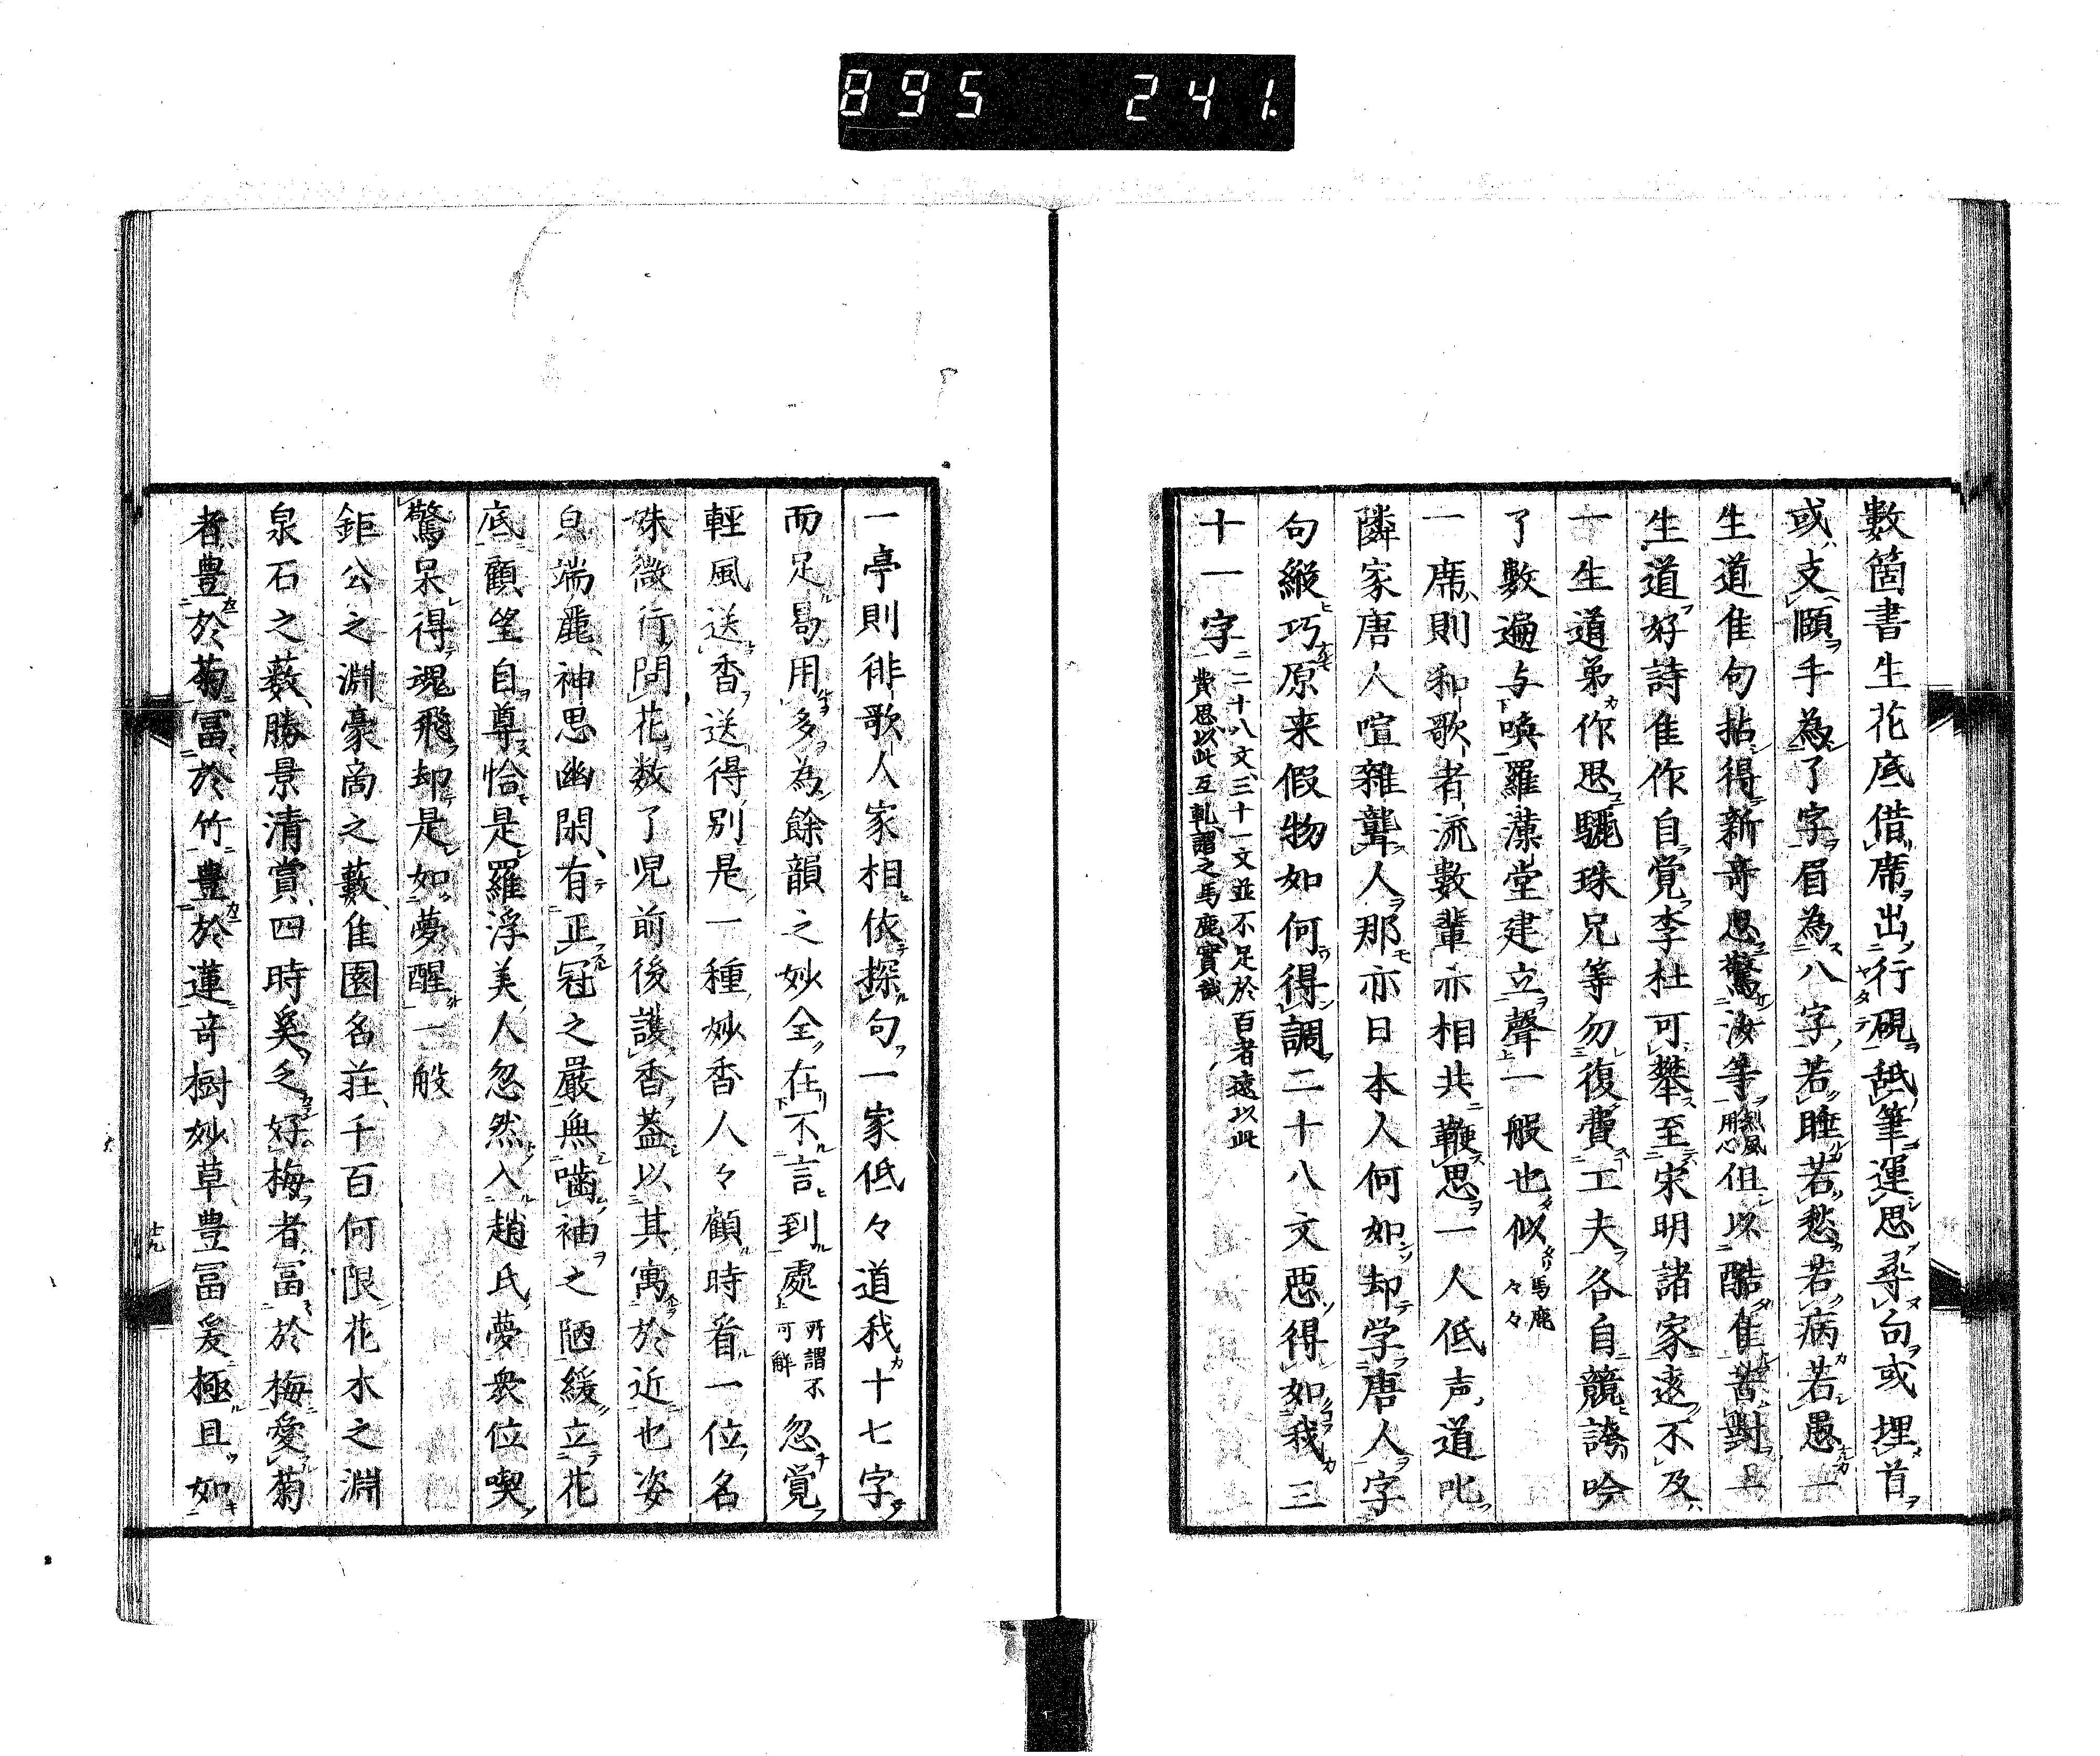 895 241.
數箇書生花底借席出行硯舐筆運思尋句或埋首
或支頤手為了字眉為八字若睡若愁若病若愚一
生道佳句拈得新奇思驚汝等烈風用心但以酷隹苦對一
生道好詩佳作自覚李杜可攀至宋明諸家遠不及
一生道弟作思驪珠兄等勿復費工夫各自競誇吟
了數遍与喚羅漢堂建立聲一般也似馬鹿々々
一席則和歌者流數輩亦相共鞭思一人低声道叱
隣家唐人喧雜聾人那亦日本人何如却学唐人字
句縱巧原来假物如何得調二十八文惡得如我三
十一字二十八文三十一文並不足於百者遠以此費思以此互軋謂之馬鹿實哉
一亭則徘歌人家相依探句一家低々道我十七字
而足曷用多為餘韻之妙全在不言到處所謂不可解忽覚
輕風送香送得別是一種妙香人々顧時看一位名
姝微行問花数了児前後護香蓋以其寓於近也姿
皃端麗神思幽閑有正冠之嚴無嚙袖之陋緩立花
底顧望自尊恰是羅浮美人忽然入趙氏夢衆位喫
驚呆得魂飛却是如夢醒一般
鉅公之淵豪商之藪佳園名荘千百何限花木之淵
泉石之藪勝景清賞四時奚乏好梅者冨於梅愛菊
者豊於菊冨於竹豊於蓮奇樹妙草豊冨爰極且如
十九